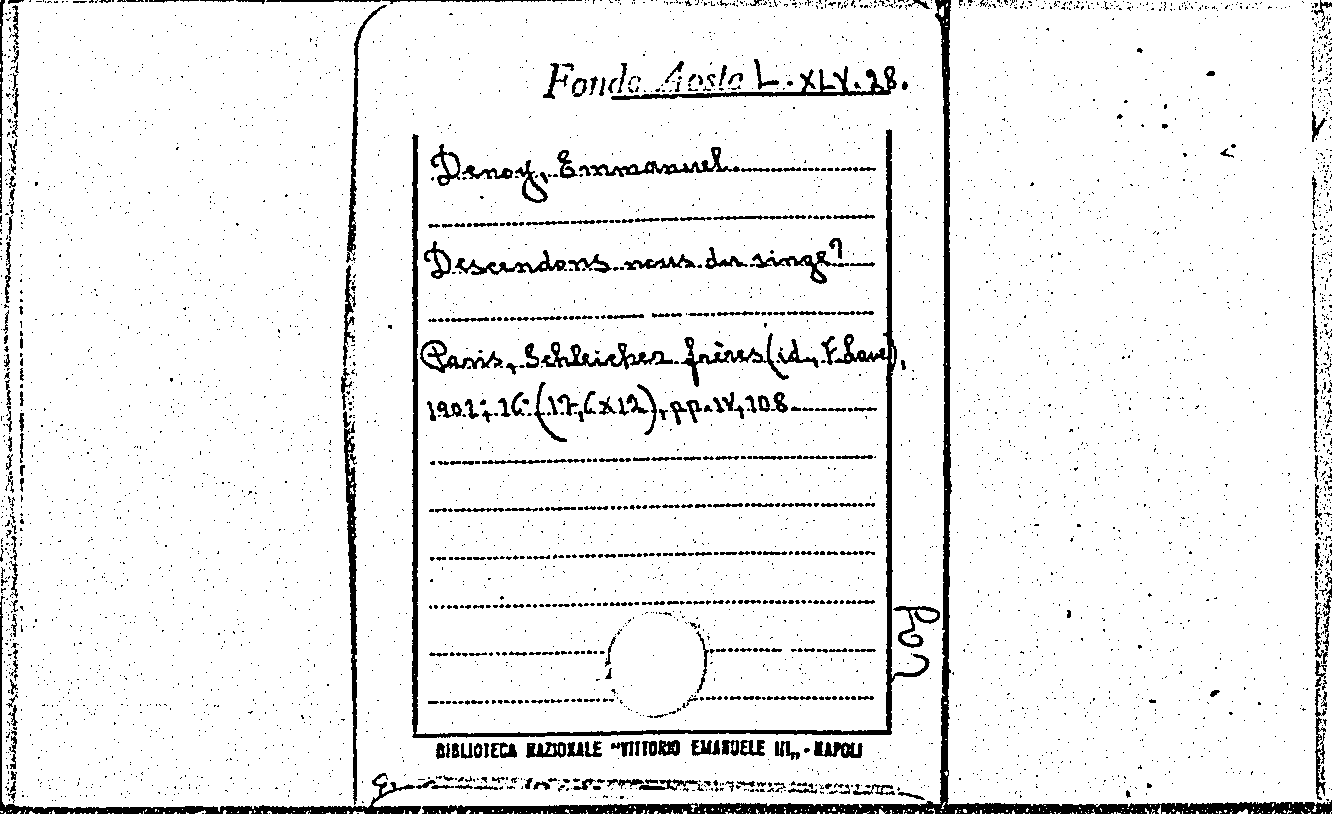 Fondo Aosta L. XLV. 28.
Denoy, Emmanuel
Descendons nous du singe?
Paris, Schleicher frères (id., F. Lavé),
1901; 16° (17,6x12), pp. IV, 108
BIBLIOTECA NAZIONALE "VITTORIO EMANUELE III„ - NAPOLI